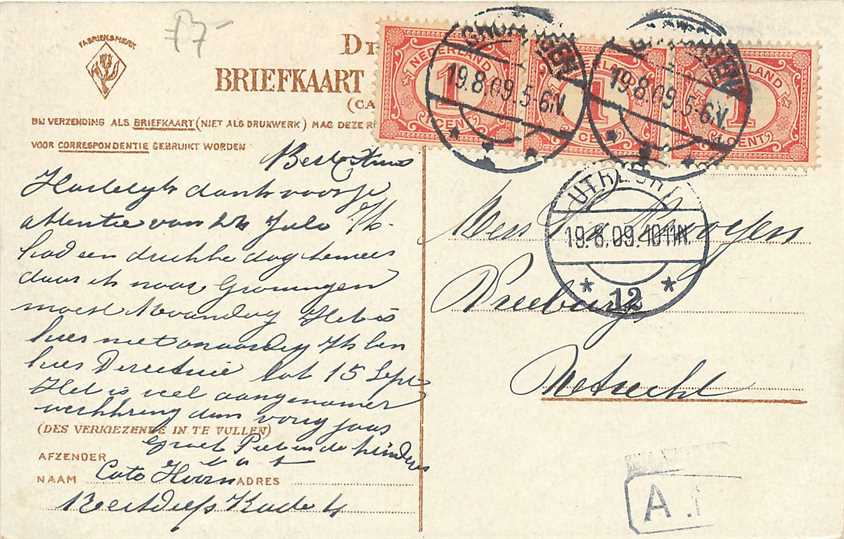 F7-
FABRIEKSMERK
Dr
BRIEFKAART
(CA
BIJ VERZENDING ALS BRIEFKAART (NIET ALS DRUKWERK) MAG DEZE R
VOOR CORRESPONDENTIE GEBRUIKT WORDEN
NEDERLAND
1
CENT
1
1
CENT
GRONINGEN
19.8.09.5-6.N.
GRONINGEN
19.8.09.5-6.N.
UTRECHT
19.8.09.10-11N.
12
Hartelijk dank voor je
attentie van 24 Julo
had een
daar ik naar Groningen
moest Maandag Het is
hier niet onaardig Ik ben
hier Directrice tot 15 Sept
Het is veel aangenamer
dan vorig jaar
(DES VERKIEZENDE IN TE VULLEN)
groet Piet en de kinderen
AFZENDER
NAAM Cato Hoorn ADRES
Reitdiep Kade 4
Vreeburg
Utrecht
A.